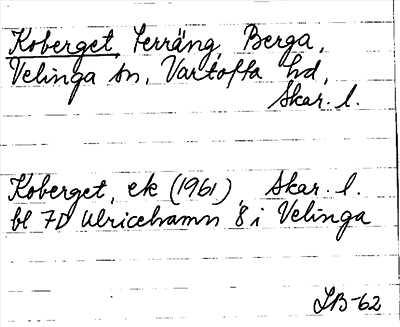 Koberget, terräng, Berga,
Velinga sn, Vartofta hd,
Skar. l.
Koberget, ek (1961), Skar. l.
bl 7D Ulricehamn 8 i Velinga
LB-62